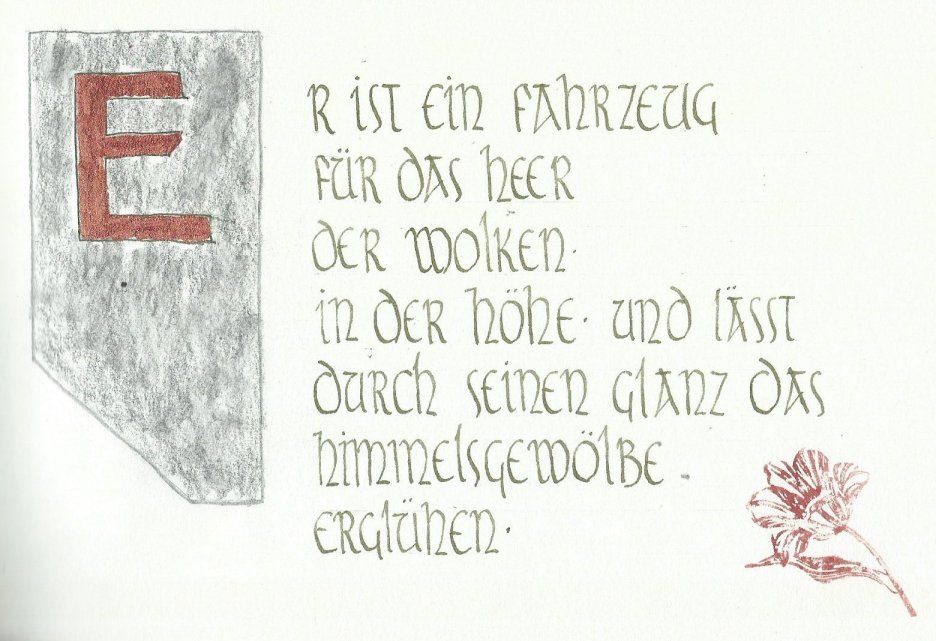 ER IST EIN FAHRZEUG
FÜR DAS HEER
DER WOLKEN·
IN DER HÖHE· UND LÄSST
DURCH SEINEN GLANZ DAS
HIMMELSGEWÖLBE
ERGLÜHEN·